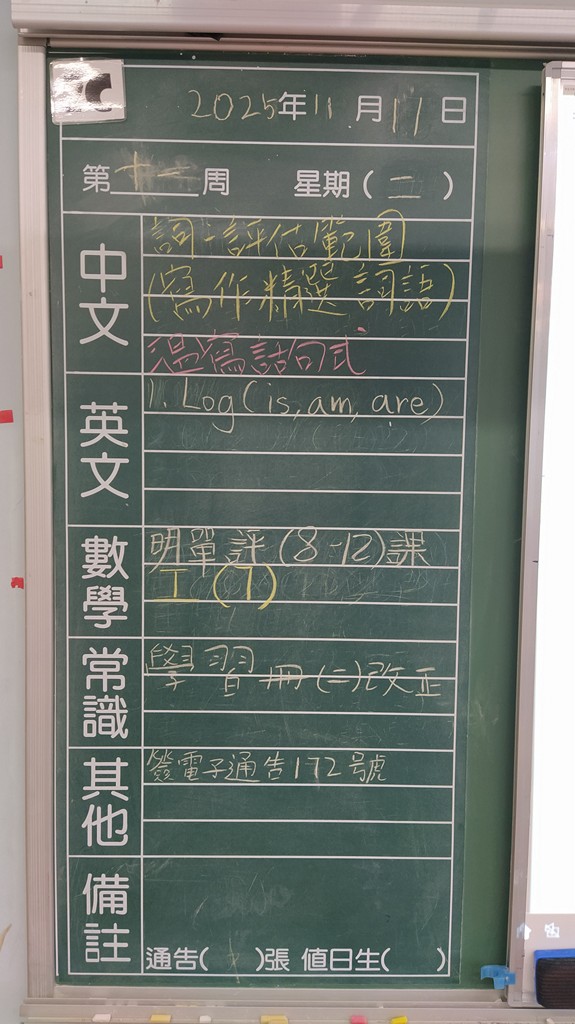 C
2025年11月11日
第十一周 星期(二)
中文
詞-評估範圍
(寫作精選詞語)
温寫話句式
英文
1. Log(is, am, are)
數學
明單評(8-12)課
工(7)
常識
學習冊(二)改正
其他
簽電子通告172號
備註
通告( )張 值日生( )